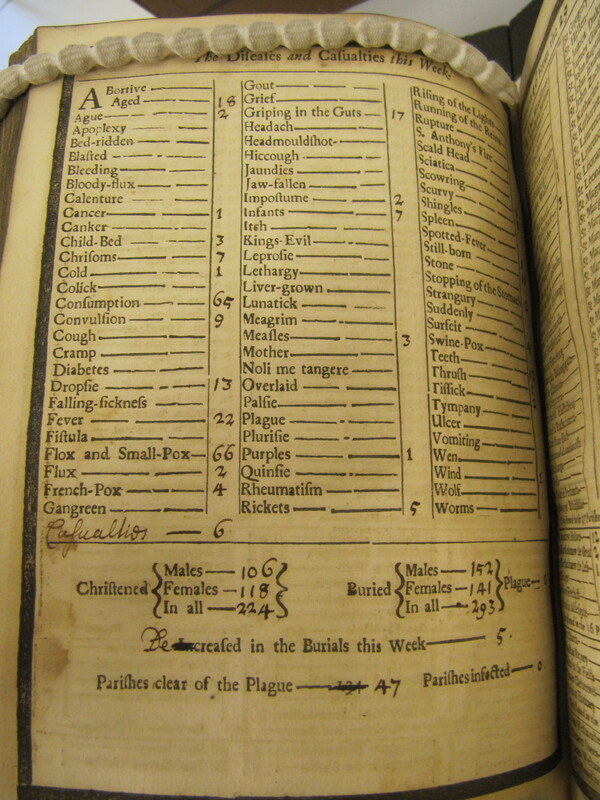 The Diseases and Casualties this Week
ABortive
Aged 18
Ague 2
Apoplexy
Bed-ridden
Blasted
Bleeding
Bloody-flux
Calenture
Cancer 1
Canker
Child-Bed 3
Chrisoms 7
Cold 1
Colick
Consumption 65
Convulsion 9
Cough
Cramp
Diabetes
Dropsie 13
Falling-sickness
Fever 22
Fistula
Flox and Small-Pox 66
Flux 2
French-Pox 4
Gangreen
Casualtios — 6
Gout
Grief
Griping in the Guts 17
Headach
Headmouldshot
Hiccough
Jaundies
Jaw-fallen
Impostume 2
Infants 7
Itch
Kings-Evil
Leprosie
Lethargy
Liver-grown
Lunatick
Meagrim
Measles 3
Mother
Noli me tangere
Overlaid
Palsie
Plague
Plurisie
Purples 1
Quinsie
Rheumatism
Rickets 5
Rising of the Lights
Running of the Reins
Rupture
S. Anthony's Fire
Scald Head
Sciatica
Scowring
Scurvy
Shingles
Spleen
Spotted-Fever
Still-born
Stone
Stopping of the Stomach
Strangury
Suddenly
Surfeit
Swine-Pox
Teeth
Thrush
Tissick
Tympany
Ulcer
Vomiting
Wen
Wind
Wolf
Worms
Christened Males — 106
Females — 118
In all — 224
Buried Males — 152
Females — 141
In all — 293
Plague
Decreased in the Burials this Week — 5.
Parishes clear of the Plague — 134 47 Parishes infected — 0.